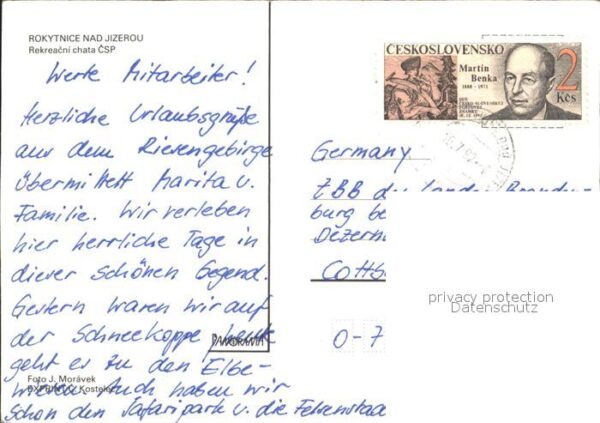 ROKYTNICE NAD JIZEROU
Rekreační chata ČSP
Werte Mitarbeiter!
Herzliche Urlaubsgrüße
aus dem Riesengebirge
übermittelt Marita u.
Familie. Wir verleben
hier herrliche Tage in
dieser schönen Gegend.
Gestern waren wir auf
der Schneekoppe, heute
geht es zu den Elbe-
wiesen. Auch haben wir
schon den Safaripark u. die Felsenstad
PANORAMA
Foto J. Morávek
Kostelec
ČESKOSLOVENSKO
Martin
Benka
1888 - 1971
DEN
ČESKO-SLOVENSKEJ
POŠTOVEJ
ZNÁMKY
18. 12. 1992
2
Kčs
Germany
ZBB des Landes Branden-
burg be
Dezern
COTTB
O-7
privacy protection
Datenschutz